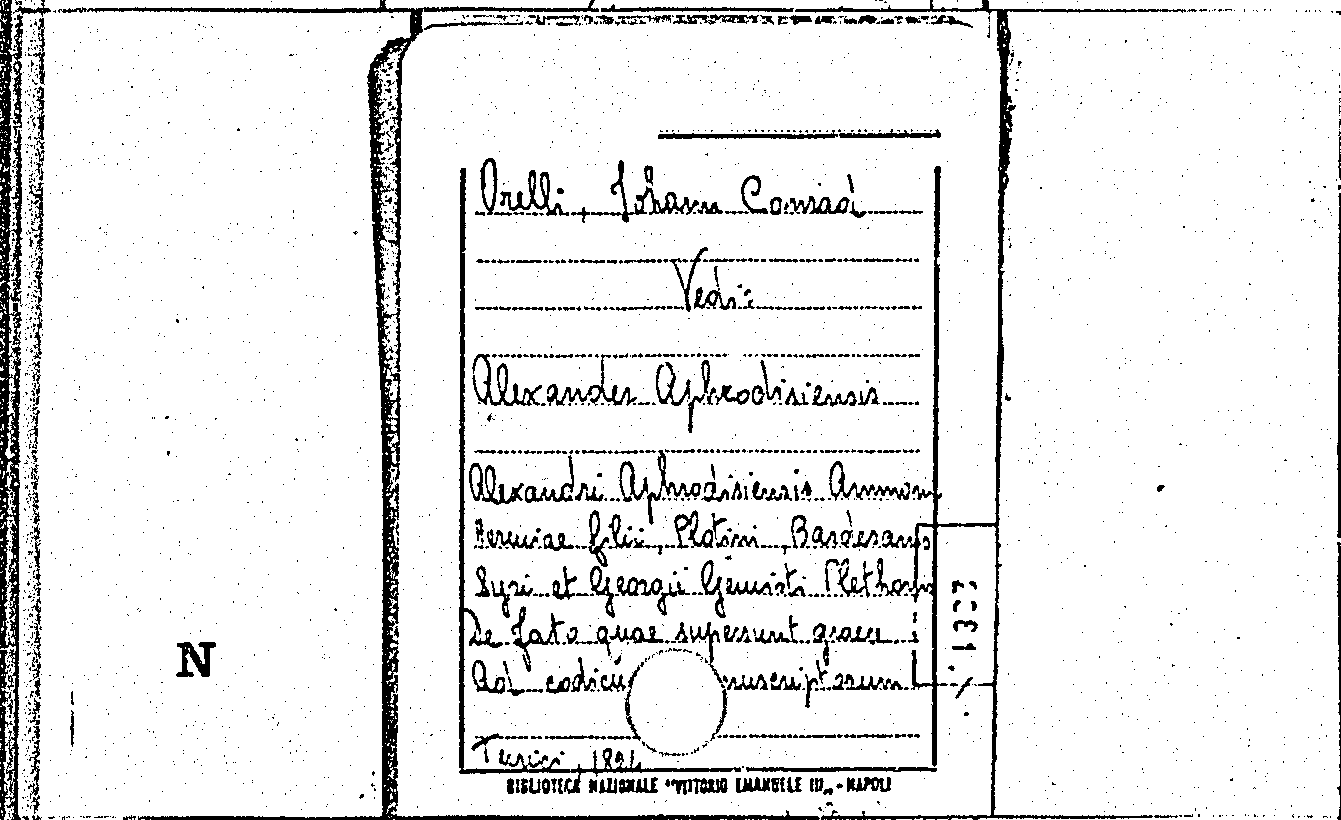 Orelli, Johann Conrad
Vedi:
Alexander Aphrodisiensis
Alexandri Aphrodisiensis Ammon
Hermiae filii, Plotini, Bardesanis
Syri et Georgii Gemisti Plethonis
De fato quae supersunt graece :
Ad codicu nuscriptorum
Turici, 1824
BIBLIOTECA NAZIONALE "VITTORIO EMANUELE III„ - NAPOLI
N